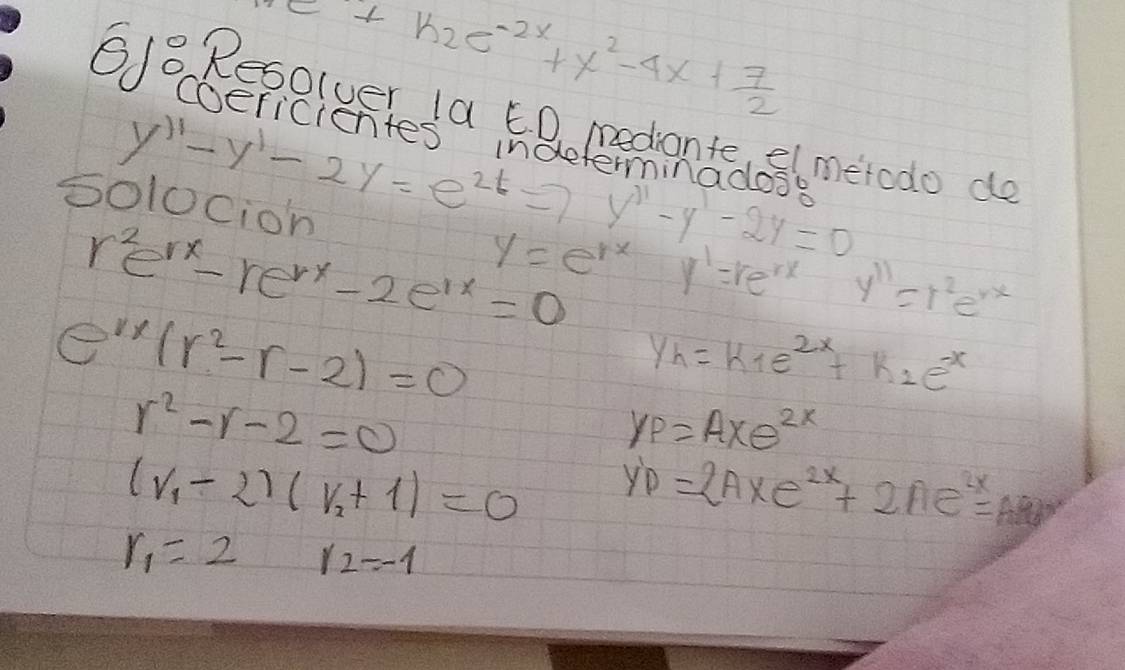 e + k₂e⁻²ˣ + x² - 4x + 7/2
6)° Resolver la E.D. mediante el método de
coericientes indeterminados:
y'' - y' - 2y = e²ᵗ ⇒ y'' - y' - 2y = 0
Solocion
y = eʳˣ y' = reʳˣ y'' = r²eʳˣ
r²eʳˣ - reʳˣ - 2eʳˣ = 0
eʳˣ(r² - r - 2) = 0
r² - r - 2 = 0
(r₁ - 2)(r₂ + 1) = 0
r₁ = 2 r₂ = -1
yh = k₁e²ˣ + k₂e⁻ˣ
yp = Axe²ˣ
y'p = 2Axe²ˣ + 2Ae²ˣ =